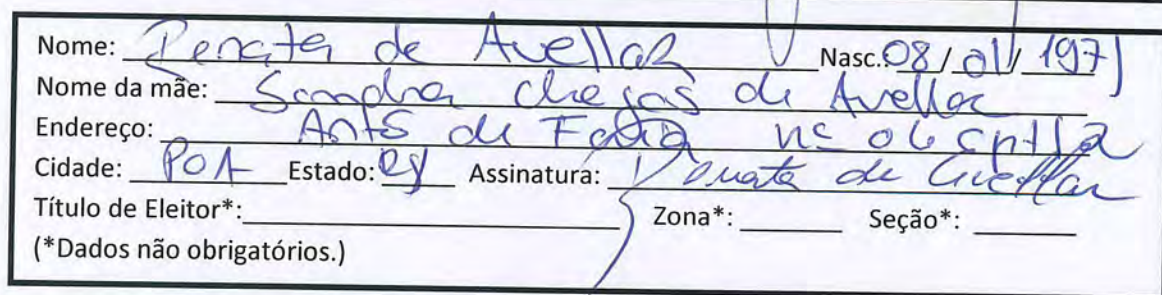 Nome: Renata de Avellar Nasc.: 08/01/1971
Nome da mãe: Sandra Chagas de Avellar
Endereço: Antº de nº 06
Cidade: POA Estado: Assinatura: Renata de Avellar
Título de Eleitor*: Zona*: Seção*:
(*Dados não obrigatórios.)